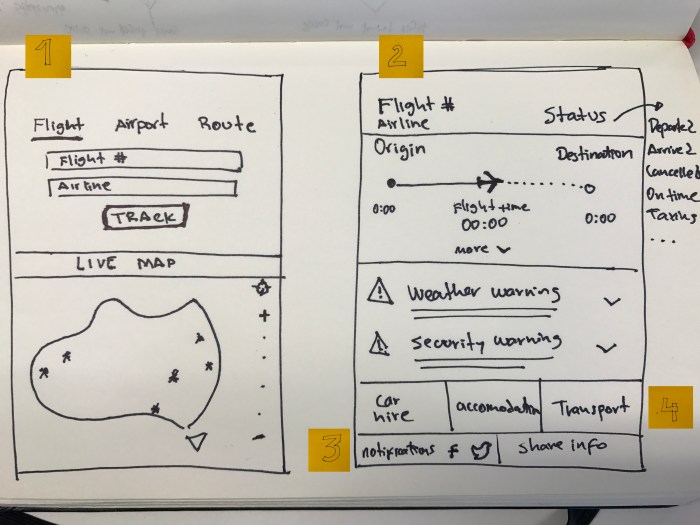 1
Flight Airport Route
Flight #
Airline
TRACK
LIVE MAP
2
Flight #
Airline
Status
Departed
Arrived
Cancelled
On time
Taxing
...
Origin
Destination
0:00
Flight time
00:00
0:00
more
Weather warning
Security warning
car
hire
accomodation
Transport
4
3
notifications f
share info